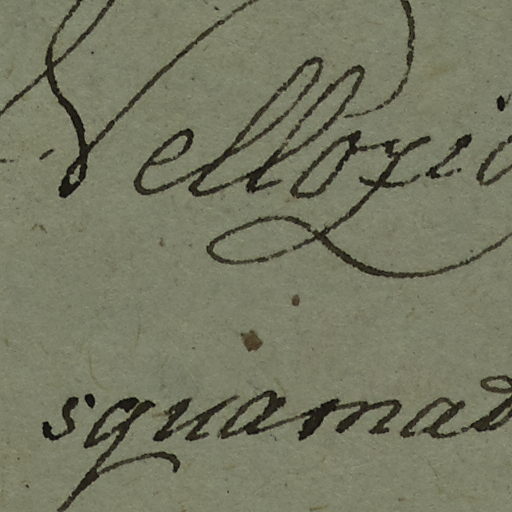 Vellozio
squamad